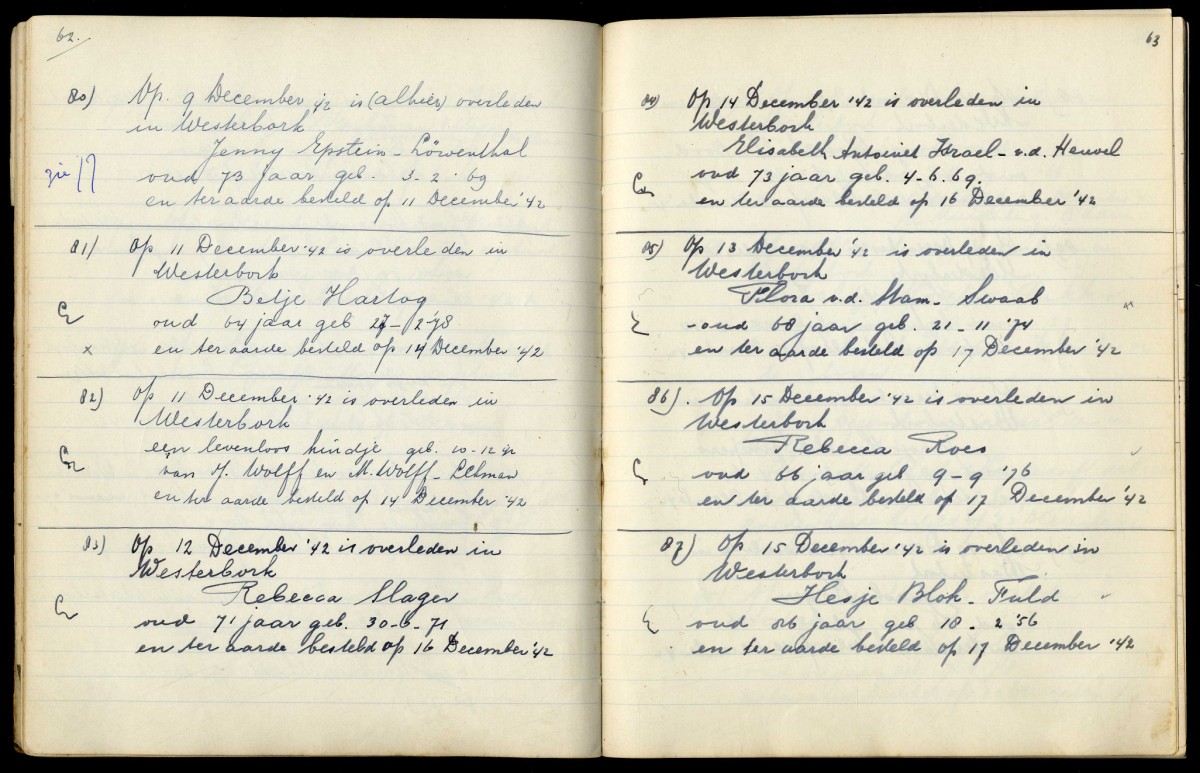 62.
80) Op. 9 December '42 is (alhier) overleden
in Westerbork
Jenny Epstein - Löwenthal
zie 77 oud 73 jaar geb. 3-2-69
en ter aarde besteld op 11 December '42
81) Op 11 December '42 is overleden in
Westerbork
Betje Hartog
oud 64 jaar geb 27-2-'78
x en ter aarde besteld op 14 December '42
82) Op 11 December '42 is overleden in
Westerbork
een levenloos kindje geb. 10-12-42
van J. Wolff en M. Wolff-
en ter aarde besteld op 14 December '42
83) Op 12 December '42 is overleden in
Westerbork
Rebecca Slager
oud 71 jaar geb. 30-6-71
en ter aarde besteld op 16 December '42
63
84) Op 14 December '42 is overleden in
Westerbork
Elisabeth Antoinet Israel - v.d. Heuvel
oud 73 jaar geb. 4-6.69.
en ter aarde besteld op 16 December '42
85) Op 13 December '42 is overleden in
Westerbork
Flora v.d. Stam - Swaab
- oud 68 jaar geb. 21-11 '74
en ter aarde besteld op 17 December '42
86). Op 15 December '42 is overleden in
Westerbork
Rebecca Roes
oud 66 jaar geb 9-9 '76
en ter aarde besteld op 17 December '42
87) Op 15 December '42 is overleden in
Westerbork
Hesje Blok - Fuld
oud 86 jaar geb 18-2 '56
en ter aarde besteld op 17 December '42